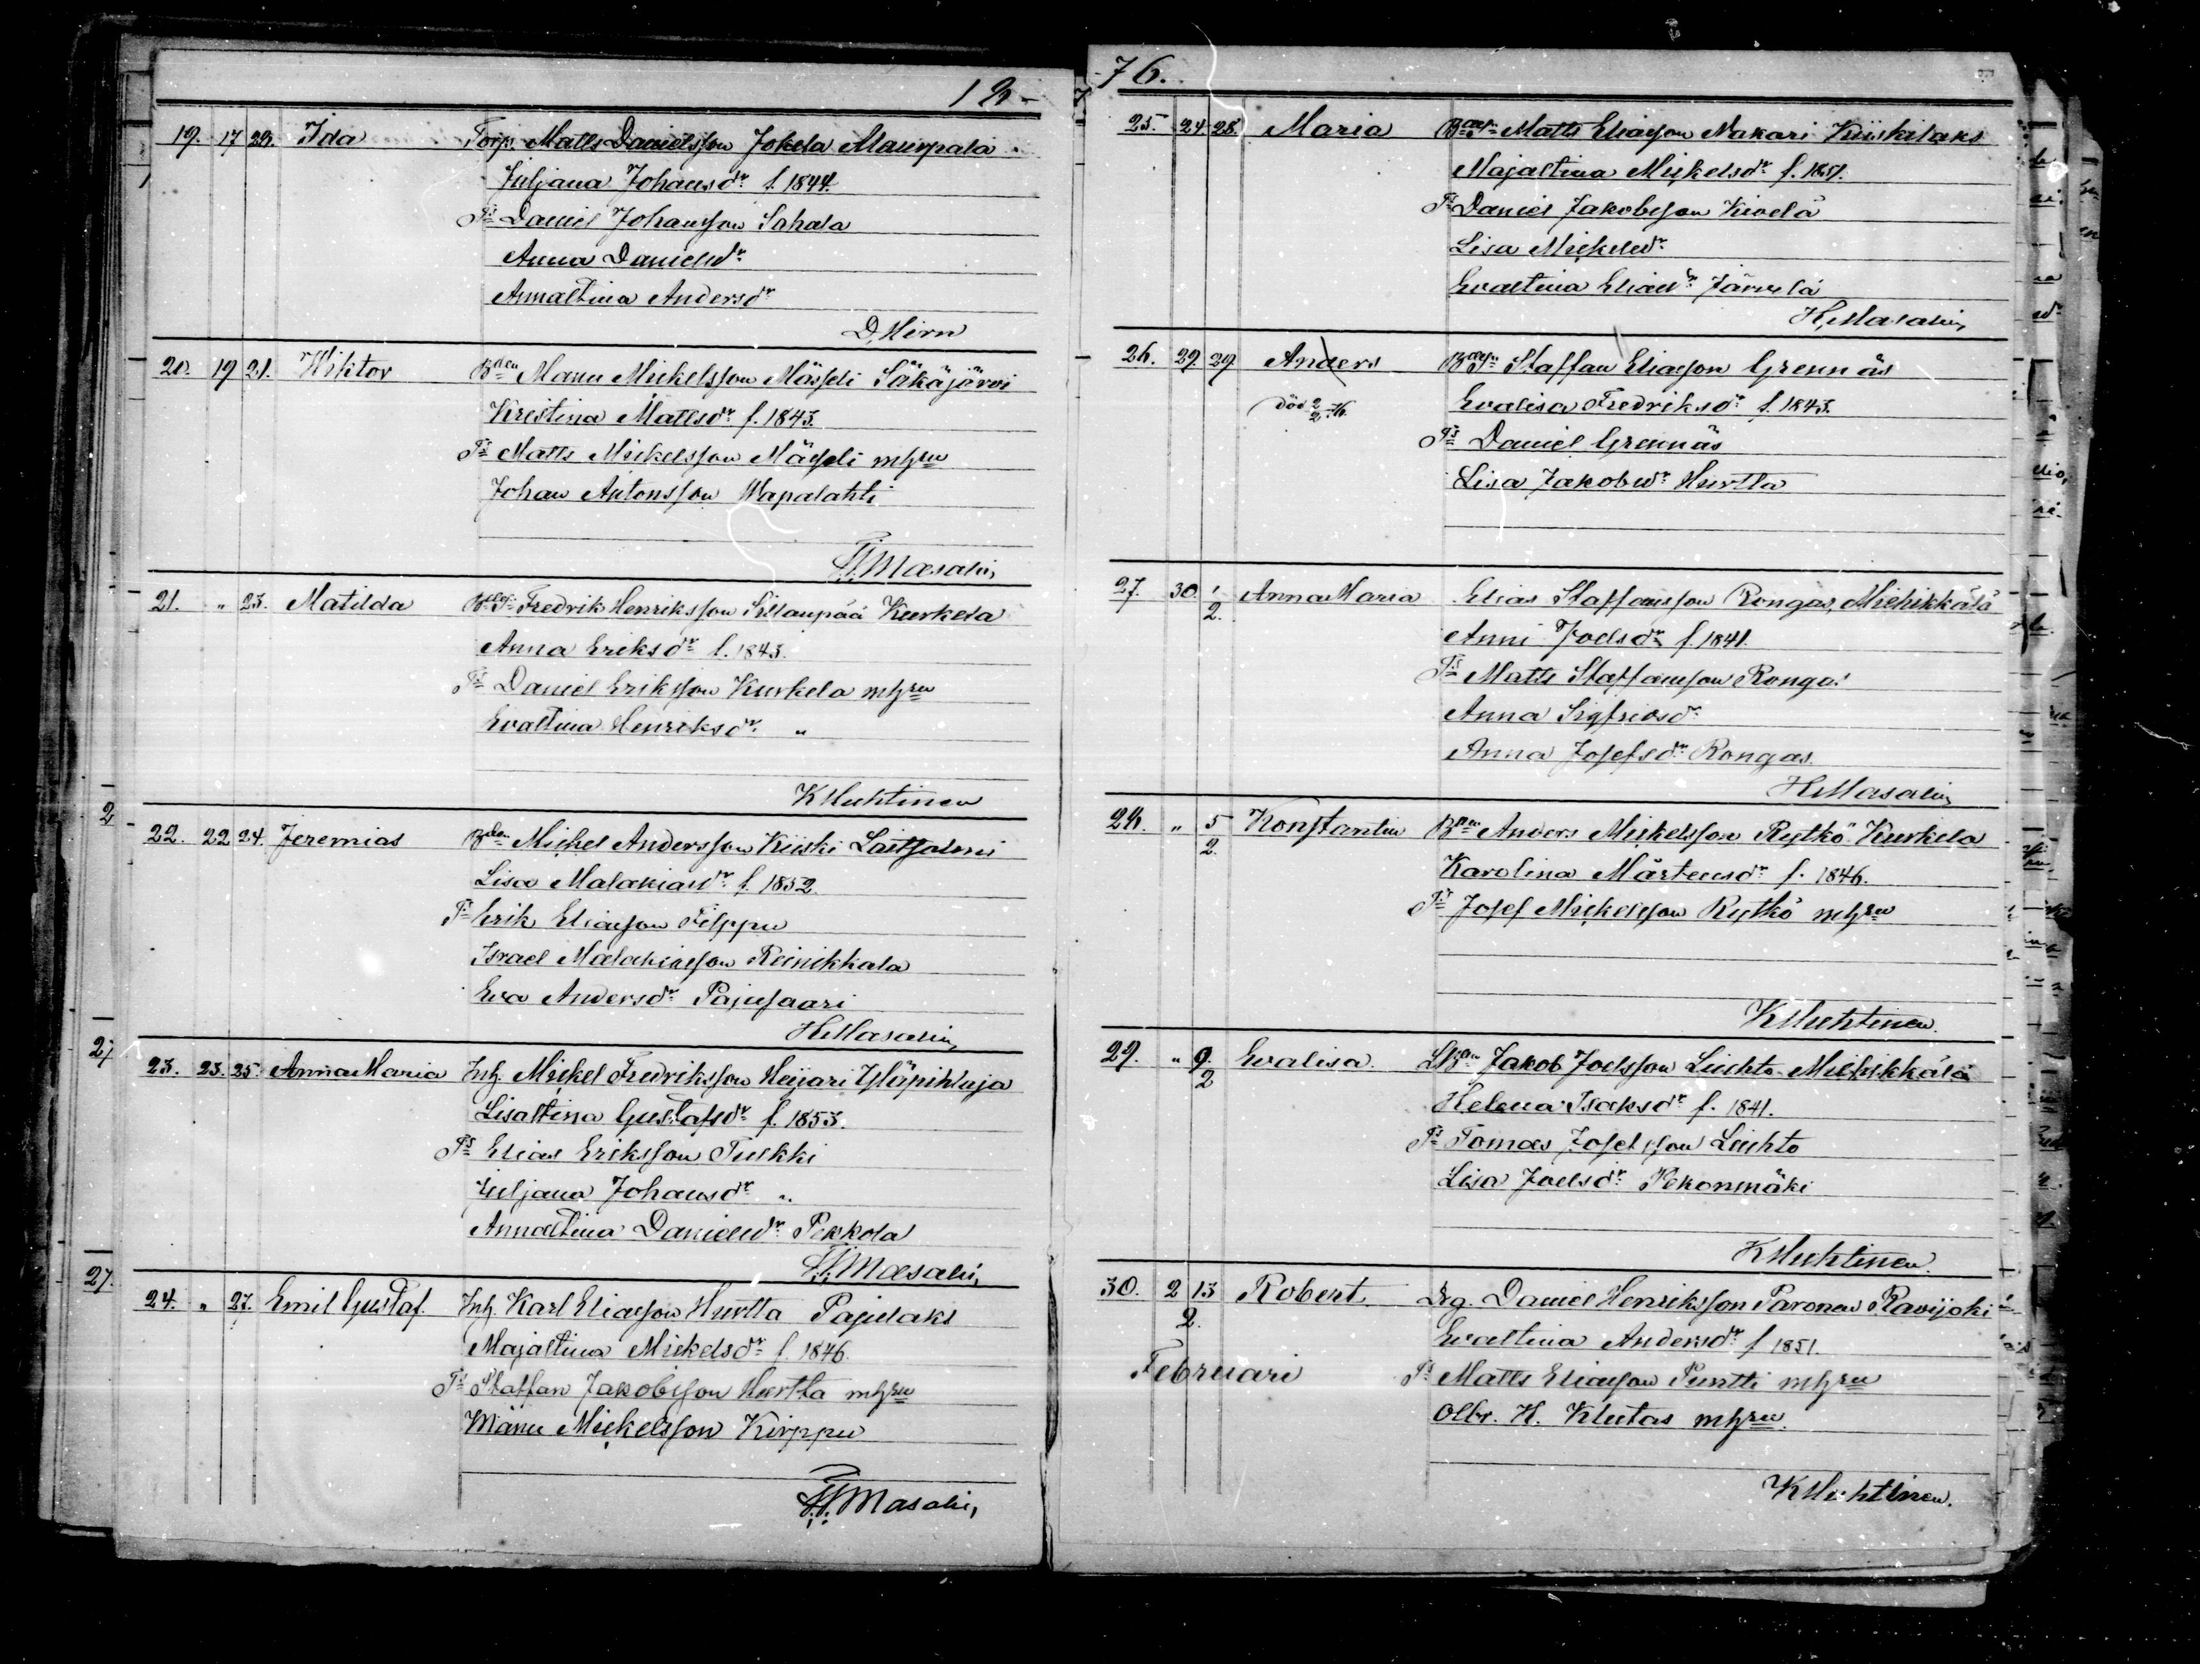 18
19. 17 23. Ida Torp. Matts Danielsson Jokela Maurpala
Juljana Johansdr f. 1844.
Fs Daniel Johansson Sahala
Anna Danielsdr
Annastina Andersdr
D. Hirn
20. 19 21. Wiktor Bden Manu Mickelsson Mässeli Säkäjärvi
Kristina Mattsdr f. 1843.
Fs Matts Mickelsson Mässeli mhru
Johan Antonsson Wapalahti
H. Masalin,
21. " 23. Matilda Fredrik Henriksson Sillanpää Kurkela
Anna Eriksdr f. 1843.
Fs Daniel Eriksson Kurkela mhru
Evastina Henriksdr "
K Huhtinen
22. 22 24. Jeremias Bden Mickel Andersson Kiiski Laitsalmi
Lisa Malakiasdr f. 1852.
Fs Erik Eliasson Filppu
Israel Malakiasson Reinikkala
Eva Andersdr Pajusaari
H. Masalin,
23. 23. 25. Anna Maria Inh. Mickel Fredriksson Heijari Yläpihlaja
Lisastina Gustafsdr f. 1853.
Fs Elias Eriksson Tulkki
Juljana Johansdr "
Annastina Danielsdr Pekkola
H. Masalin,
24. " 27. Emil Gustaf. Inh. Karl Eliasson Hurtta Pajulaks
Majastina Mickelsdr f. 1846.
Fs Staffan Jakobsson Hurtta mhru
Manu Mickelsson Kirppu
H. Masalin,
76.
25. 24. 28. Maria Matts Eliasson Nakari Kiiskilaks
Majastina Mickelsdr f. 1851.
Fs Daniel Jakobsson Kivelä
Lisa Mickelsdr
Evastina Eliasdr Järvelä
H. Masalin,
26. 29. 29 Anders Staffan Eliasson Grennäs
död 2/2 76. Evalisa Fredriksdr f. 1843.
Fs Daniel Grennäs
Lisa Jakobsdr Hurtta
27. 30. 1/2. Anna Maria Elias Staffansson Rongas, Miehikkälä
Anni Joelsdr f. 1841.
Fs Matts Staffansson Rongas
Anna Sigfridsdr
Anna Josefsdr Rongas.
H. Masalin,
28. " 5/2. Konstantin Bden Anders Mickelsson Rytkö Kurkela
Karolina Mårtensdr f. 1846.
Fs Josef Mickelsson Rytkö mhru
K Huhtinen.
29. " 9./2 Evalisa. Jakob Joelsson Liuhto Miehikkälä
Helena Isaksdr f. 1841.
Fs Tomas Josefsson Liuhto
Lisa Joelsdr Pekonmäki
K Huhtinen.
30. 2/2. 13 Robert. Drg. Daniel Henriksson Paronen Ravijoki
Evastina Andersdr f 1851.
Februari Fs Matts Eliasson Puntti mhru
Olbr. H. Klutas mhru.
K Huhtinen.